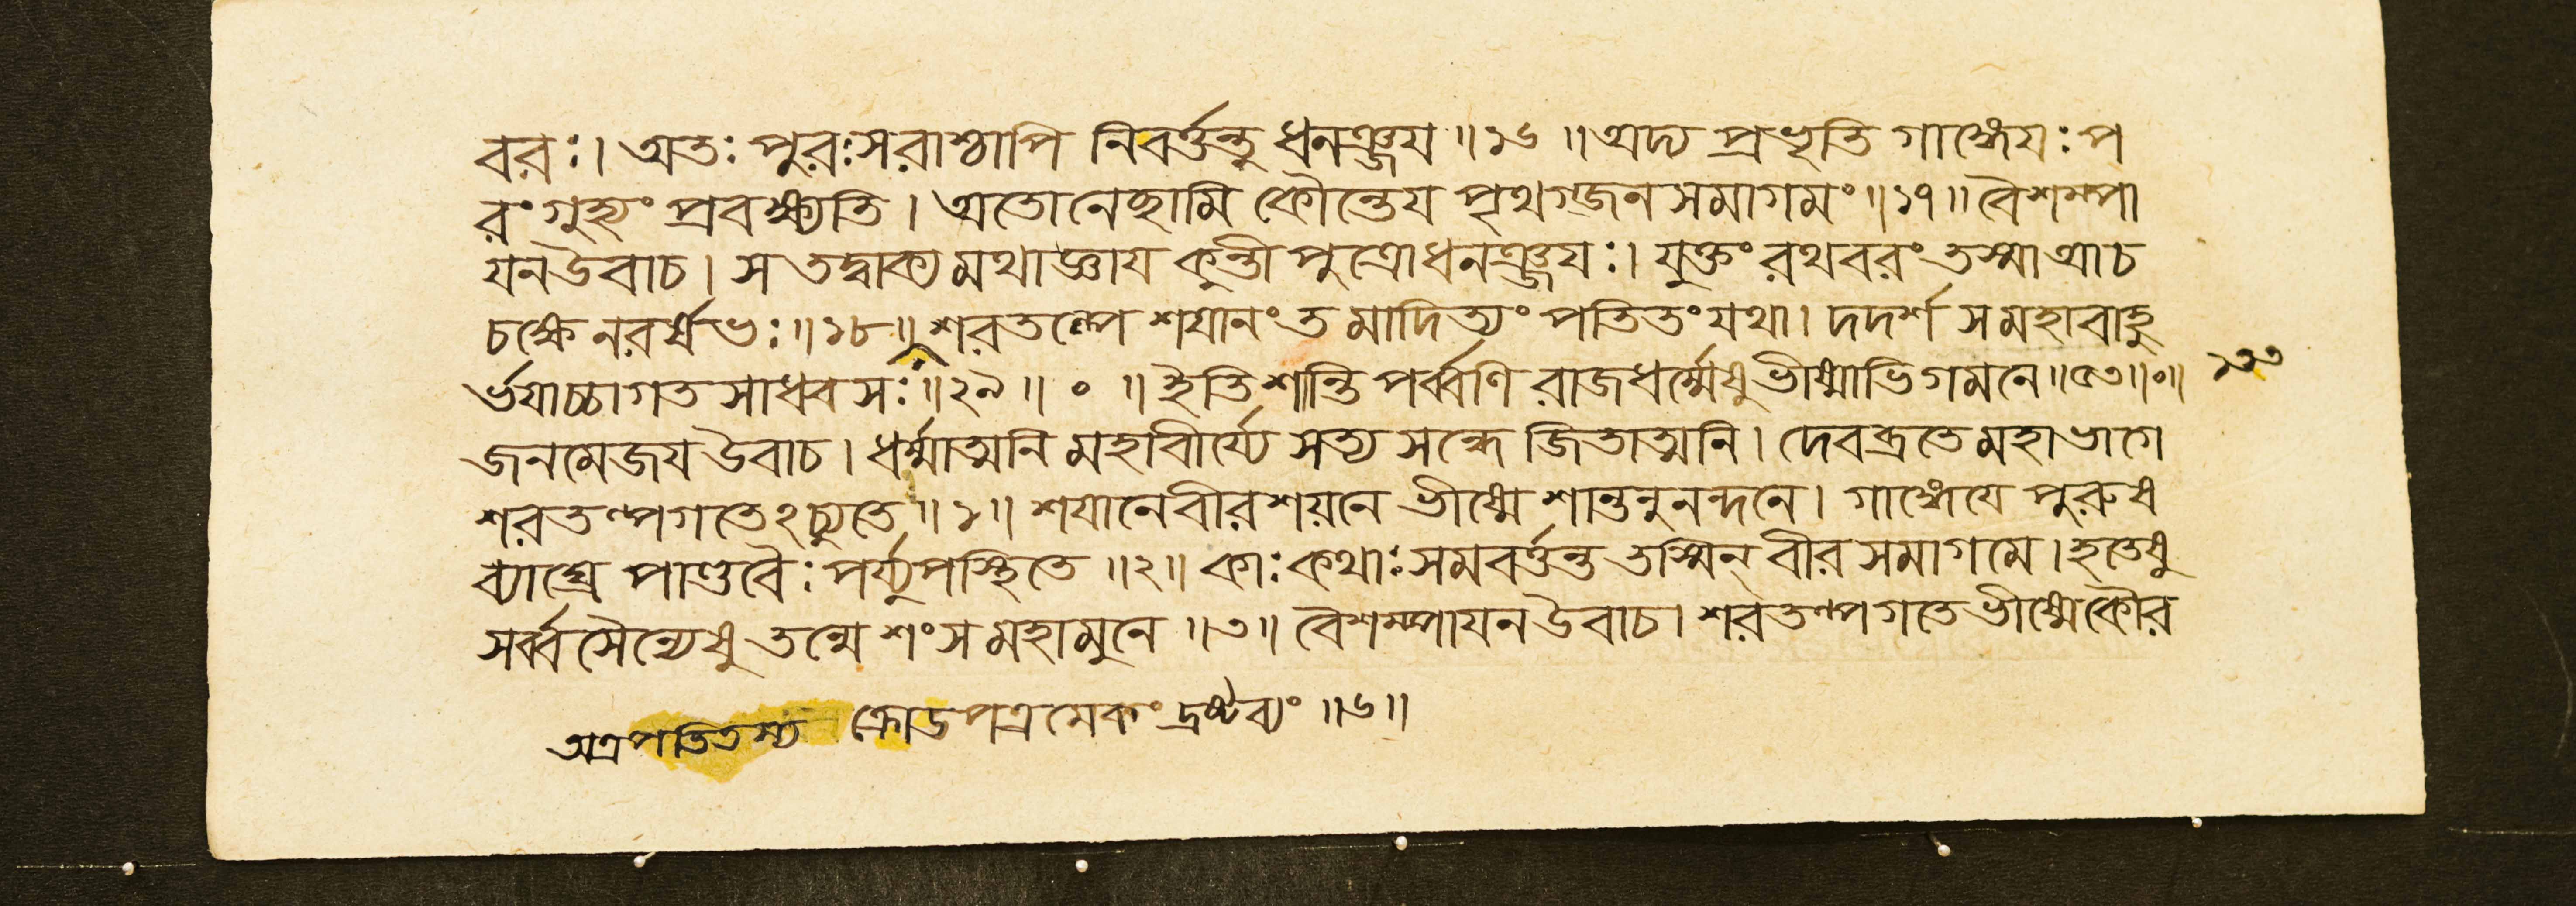 বরঃ। অতঃ পুরঃসরাশ্চাপি নিবর্ত্তন্তু ধনঞ্জয ॥১৬॥ অদ্য প্রভৃতি গাঙ্গেযঃ প
রংগুহ্যং প্রবক্ষ্যতি। অতোনেচ্ছামি কৌন্তেয পৃথগ্জন সমাগমং॥১৭॥ বৈশম্পা
যনউবাচ। স তদ্বাক্য মথাজ্ঞায কুন্তী পুত্রোধনঞ্জযঃ। যুক্তং রথবরং তস্মা আচ
চক্ষে নরর্ষভঃ॥১৮॥ শরতল্পে শযানং ত মাদিত্যং পতিতং যথা। দদর্শ স মহাবাহু
র্ভযাচ্চাগত সাধ্বসঃ॥২৯॥ ০ ॥ ইতি শান্তি পর্ব্বণি রাজধর্ম্মেষু ভীষ্মাভিগমনে॥৫৩॥০॥
জনমেজয উবাচ। ধর্ম্মাত্মনি মহাবীর্য্যে সত্য সন্ধে জিতাত্মনি। দেবব্রতে মহাভাগে
শরতল্পগতেঽচ্যুতে ॥১॥ শযানে বীরশয়নে ভীষ্মে শান্তনুনন্দনে। গাঙ্গেযে পুরুষ
ব্যাঘ্রে পাণ্ডবৈঃ পর্য্যুপস্থিতে ॥২॥ কাঃ কথাঃ সমবর্ত্তন্ত তস্মিন্ বীর সমাগমে। হতেষু
সর্ব্ব সৈন্যেষু তন্মে শংস মহামুনে ॥৩॥ বৈশম্পাযন উবাচ। শরতল্পগতে ভীষ্মে কৌর
অত্রপতিতস্য ক্রোডপত্রমেকং দ্রষ্টব্যং ॥৬॥